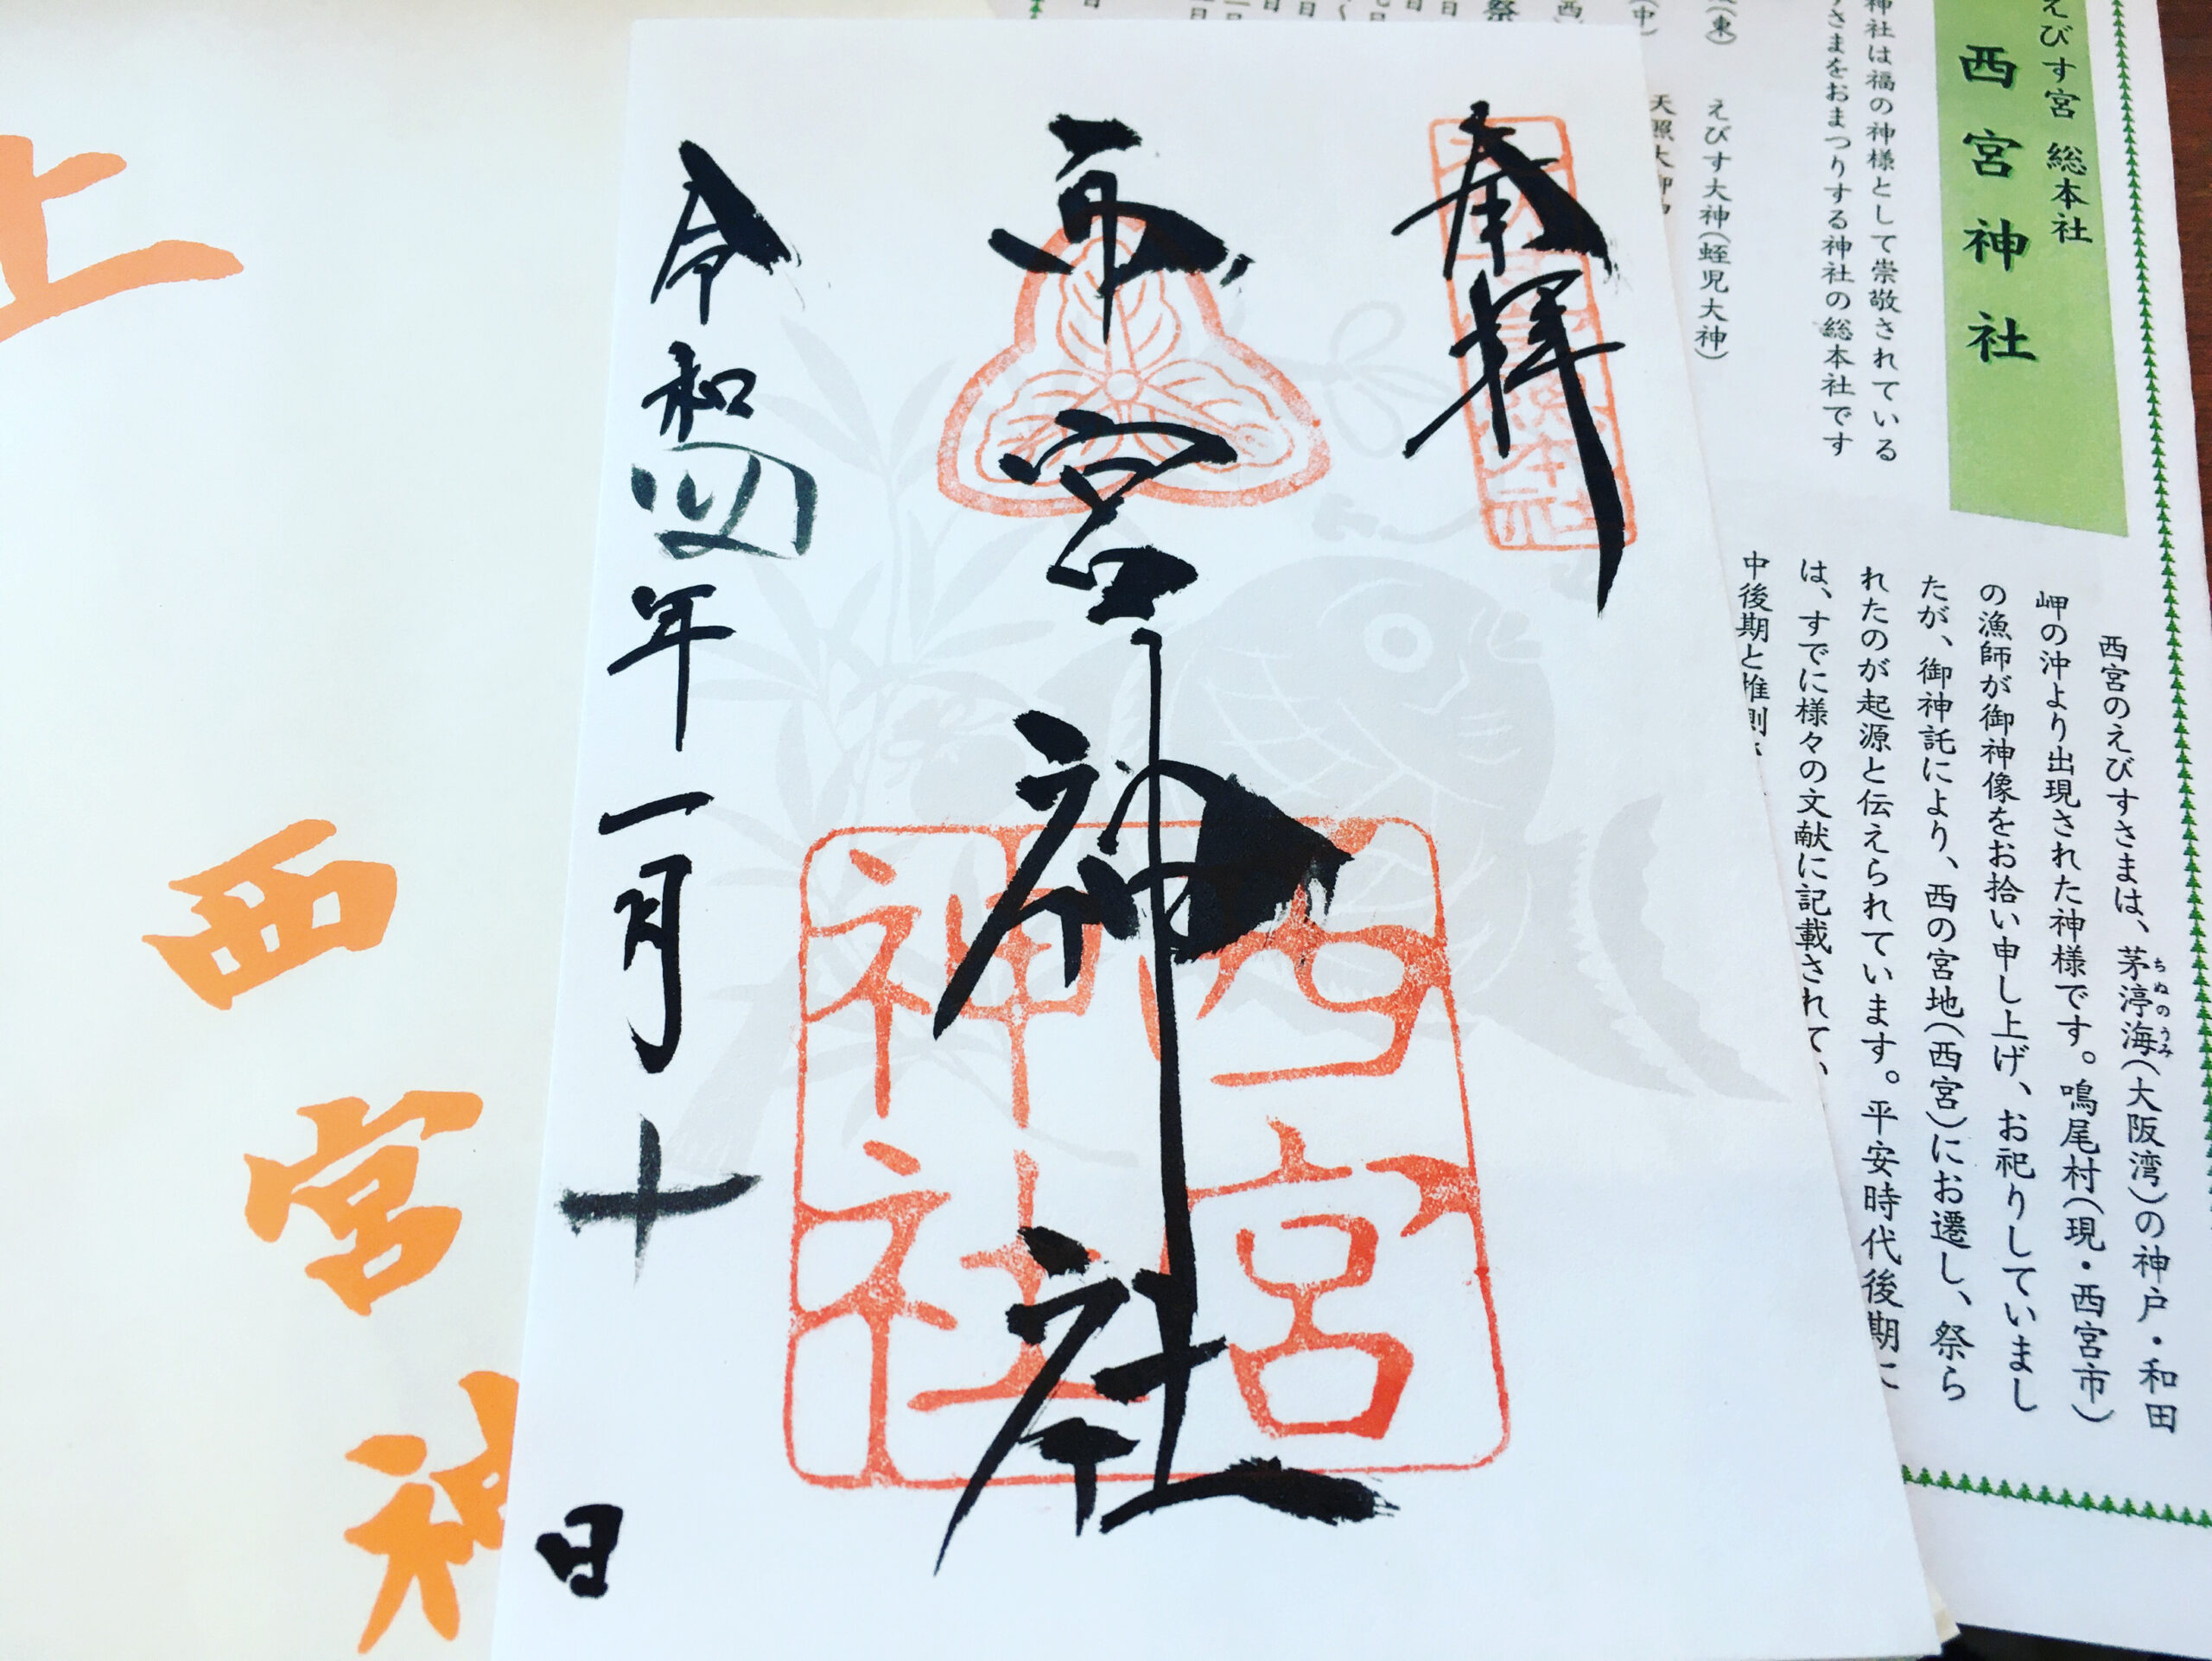 えびす宮 総本社
西宮神社
神社は福の神様として崇敬されている
さまをおまつりする神社の総本社です
えびす大神(蛭児大神)
(東)
(中)
西宮のえびすさまは、茅渟海(大阪湾)の神戸・和田
ちぬのうみ
岬の沖より出現された神様です。鳴尾村(現・西宮市)
の漁師が御神像をお拾い申し上げ、お祀りしていまし
たが、御神託により、西の宮地(西宮)にお遷し、祭ら
れたのが起源と伝えられています。平安時代後期に
は、すでに様々の文献に記載されて、
中後期と推測
奉拝
西宮神社
西宮神社
令和四年一月十日
上
西宮神